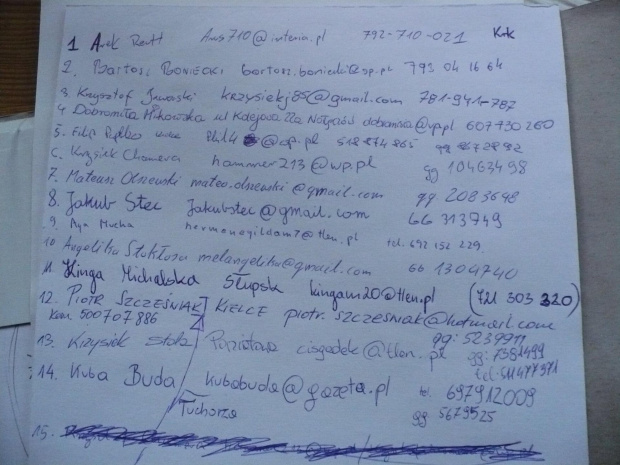 1 Arek Rentt Arus710@interia.pl 792-710-021 Krk
2. Bartosz Boniecki bartosz.boniecki@op.pl 793 04 16 64
3 Krzysztof Jaworski krzysiekj85@gmail.com 781-941-787
4 Dobromiła Mikowska ul Kolejowa 22a dobromisia@vp.pl 607730260
5. Filip @op.pl
6. Krzysiek Chamera hammer213@wp.pl gg 10463498
7. Mateusz Olszewski mateo.olszewski@gmail.com gg 2083648
8. Jakub Stec jakubstec@gmail.com GG 313749
9. Aga Mucha @tlen.pl tel. 692 152 229
10 Angelika Stokłosa melangelika@gmail.com GG 1304740
11. Kinga Michalska Słupsk kingam20@tlen.pl (721 303 320)
12. PIOTR SZCZEŚNIAK KIELCE piotr.szczesniak@hotmail.com
kom. 500707886 gg: 5239911
13. Krzysiek Stola cisgadek@tlen.pl gg: 7381499
tel. 511477371
14. Kuba Buda kubabuda@gazeta.pl tel 697912009
Tuchorza gg 5679525
15.